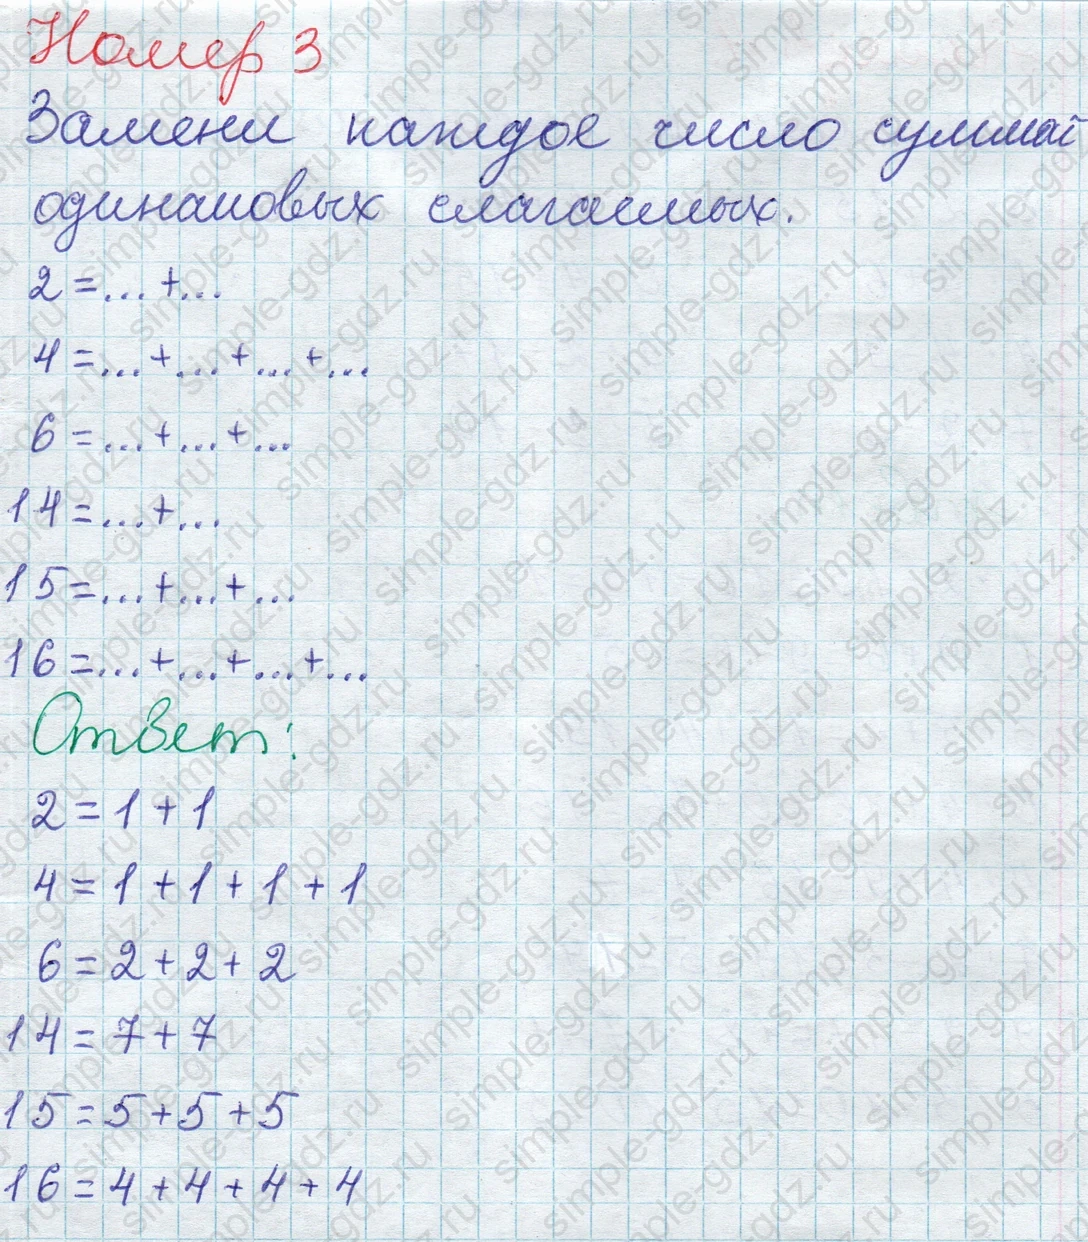 Номер 3
Замени каждое число суммой
одинаковых слагаемых.
2=...+...
4=...+...+...+...
6=...+...+...
14=...+...
15=...+...+...
16=...+...+...+...
Ответ:
2=1+1
4=1+1+1+1
6=2+2+2
14=7+7
15=5+5+5
16=4+4+4+4
simple-gdz.ru